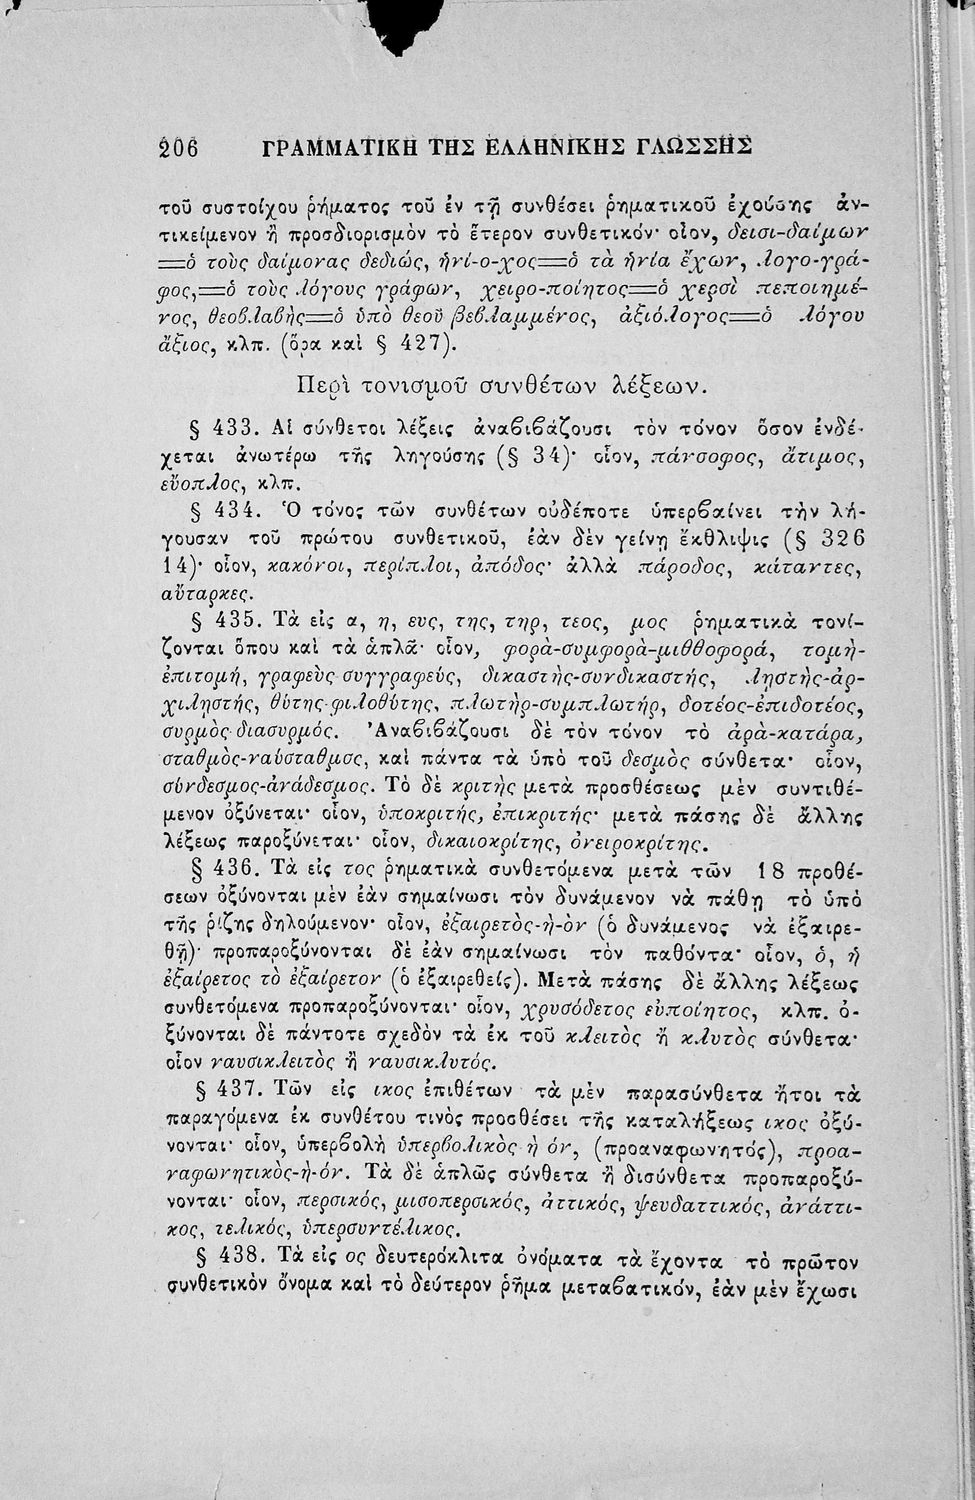 206 ΓΡΑΜΜΑΤΙΚΗ ΤΗΣ ΕΛΛΗΝΙΚΗΣ ΓΛΩΣΣΗΣ
τοῦ συστοίχου ῥήματος τοῦ ἐν τῇ συνθέσει ῥηματικοῦ ἐχούσης ἀν-
τικείμενον ἢ προσδιορισμὸν τὸ ἕτερον συνθετικόν· οἷον, δεισι-δαίμων
=ὁ τοὺς δαίμονας δεδιώς, ἡνί-ο-χος=ὁ τὰ ἡνία ἔχων, λογο-γρά-
φος,=ὁ τοὺς λόγους γράφων, χειρο-ποίητος=ὁ χερσὶ πεποιημέ-
νος, θεοβλαβὴς=ὁ ὑπὸ θεοῦ βεβλαμμένος, ἀξιόλογος=ὁ λόγου
ἄξιος, κλπ. (ὅρα καὶ § 427).
Περὶ τονισμοῦ συνθέτων λέξεων.
§ 433. Αἱ σύνθετοι λέξεις ἀναβιβάζουσι τὸν τόνον ὅσον ἐνδέ-
χεται ἀνωτέρω τῆς ληγούσης (§ 34)· οἷον, πάνσοφος, ἄτιμος,
εὔοπλος, κλπ.
§ 434. Ὁ τόνος τῶν συνθέτων οὐδέποτε ὑπερβαίνει τὴν λή-
γουσαν τοῦ πρώτου συνθετικοῦ, ἐὰν δὲν γείνῃ ἔκθλιψις (§ 326
14)· οἷον, κακόνοι, περίπλοι, ἀπόδος· ἀλλὰ πάροδος, κάταντες,
αὔταρκες.
§ 435. Τὰ εἰς α, η, ευς, της, τηρ, τεος, μος ῥηματικὰ τονί-
ζονται ὅπου καὶ τὰ ἁπλᾶ· οἷον, φορὰ-συμφορὰ-μιθθοφορά, τομὴ-
ἐπιτομή, γραφεὺς-συγγραφεύς, δικαστὴς-συνδικαστής, λῃστὴς-ἀρ-
χιλῃστής, θύτης-φιλοθύτης, πλωτὴρ-συμπλωτήρ, δοτέος-ἐπιδοτέος,
συρμὸς-διασυρμός. Ἀναβιβάζουσι δὲ τὸν τόνον τὸ ἀρὰ-κατάρα,
σταθμὸς-ναύσταθμος, καὶ πάντα τὰ ὑπὸ τοῦ δεσμὸς σύνθετα· οἷον,
σύνδεσμος-ἀνάδεσμος. Τὸ δὲ κριτὴς μετὰ προσθέσεως μὲν συντιθέ-
μενον ὀξύνεται· οἷον, ὑποκριτής, ἐπικριτής· μετὰ πάσης δὲ ἄλλης
λέξεως παροξύνεται· οἷον, δικαιοκρίτης, ὀνειροκρίτης.
§ 436. Τὰ εἰς τος ῥηματικὰ συνθετόμενα μετὰ τῶν 18 προθέ-
σεων ὀξύνονται μὲν ἐὰν σημαίνωσι τὸν δυνάμενον νὰ πάθῃ τὸ ὑπὸ
τῆς ῥίζης δηλούμενον· οἷον, ἐξαιρετὸς-ὴ-ὸν (ὁ δυνάμενος νὰ ἐξαιρε-
θῇ)· προπαροξύνονται δὲ ἐὰν σημαίνωσι τὸν παθόντα· οἷον, ὁ, ἡ
ἐξαίρετος τὸ ἐξαίρετον (ὁ ἐξαιρεθείς). Μετὰ πάσης δὲ ἄλλης λέξεως
συνθετόμενα προπαροξύνονται· οἷον, χρυσόδετος εὐποίητος, κλπ. ὀ-
ξύνονται δὲ πάντοτε σχεδὸν τὰ ἐκ τοῦ κλειτὸς ἢ κλυτὸς σύνθετα·
οἷον ναυσικλειτὸς ἢ ναυσικλυτός.
§ 437. Τῶν εἰς ικος ἐπιθέτων τὰ μὲν παρασύνθετα ἤτοι τὰ
παραγόμενα ἐκ συνθέτου τινὸς προσθέσει τῆς καταλήξεως ικος ὀξύ-
νονται· οἷον, ὑπερβολὴ ὑπερβολικὸς-ἡ όν, (προαναφωνητός), προα-
ναφωνητικὸς-ἡ-όν. Τὰ δὲ ἁπλῶς σύνθετα ἢ δισύνθετα προπαροξύ-
νονται· οἷον, περσικός, μισοπερσικός, ἀττικός, ψευδαττικός, ἀνάττι-
κος, τελικός, ὑπερσυντέλικος.
§ 438. Τὰ εἰς ος δευτερόκλιτα ὀνόματα τὰ ἔχοντα τὸ πρῶτον
συνθετικὸν ὄνομα καὶ τὸ δεύτερον ῥῆμα μεταβατικόν, ἐὰν μὲν ἔχωσι